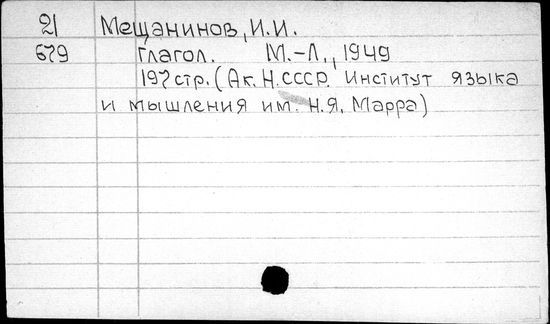 21 Мещанинов, И.И.
679 Глагол. М.-Л., 1949
197 стр. (Ак. Н. СССР. Институт языка
и мышления им. Н.Я. Марра)